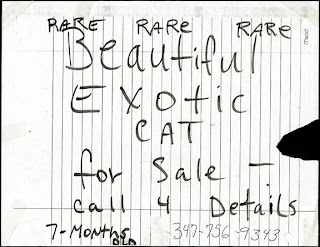 RARE RARE RARE
Beautiful
EXOTIC
CAT
for Sale -
call 4 Details
7-Months OLD 347-756-9343